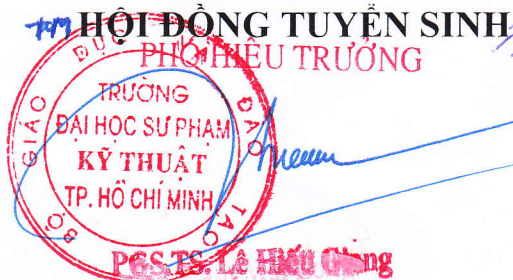 TM HỘI ĐỒNG TUYỂN SINH
PHÓ HIỆU TRƯỞNG
BỘ GIÁO DỤC VÀ ĐÀO TẠO
TRƯỜNG
ĐẠI HỌC SƯ PHẠM
KỸ THUẬT
TP. HỒ CHÍ MINH
PGS.TS. Lê Hiếu Giang